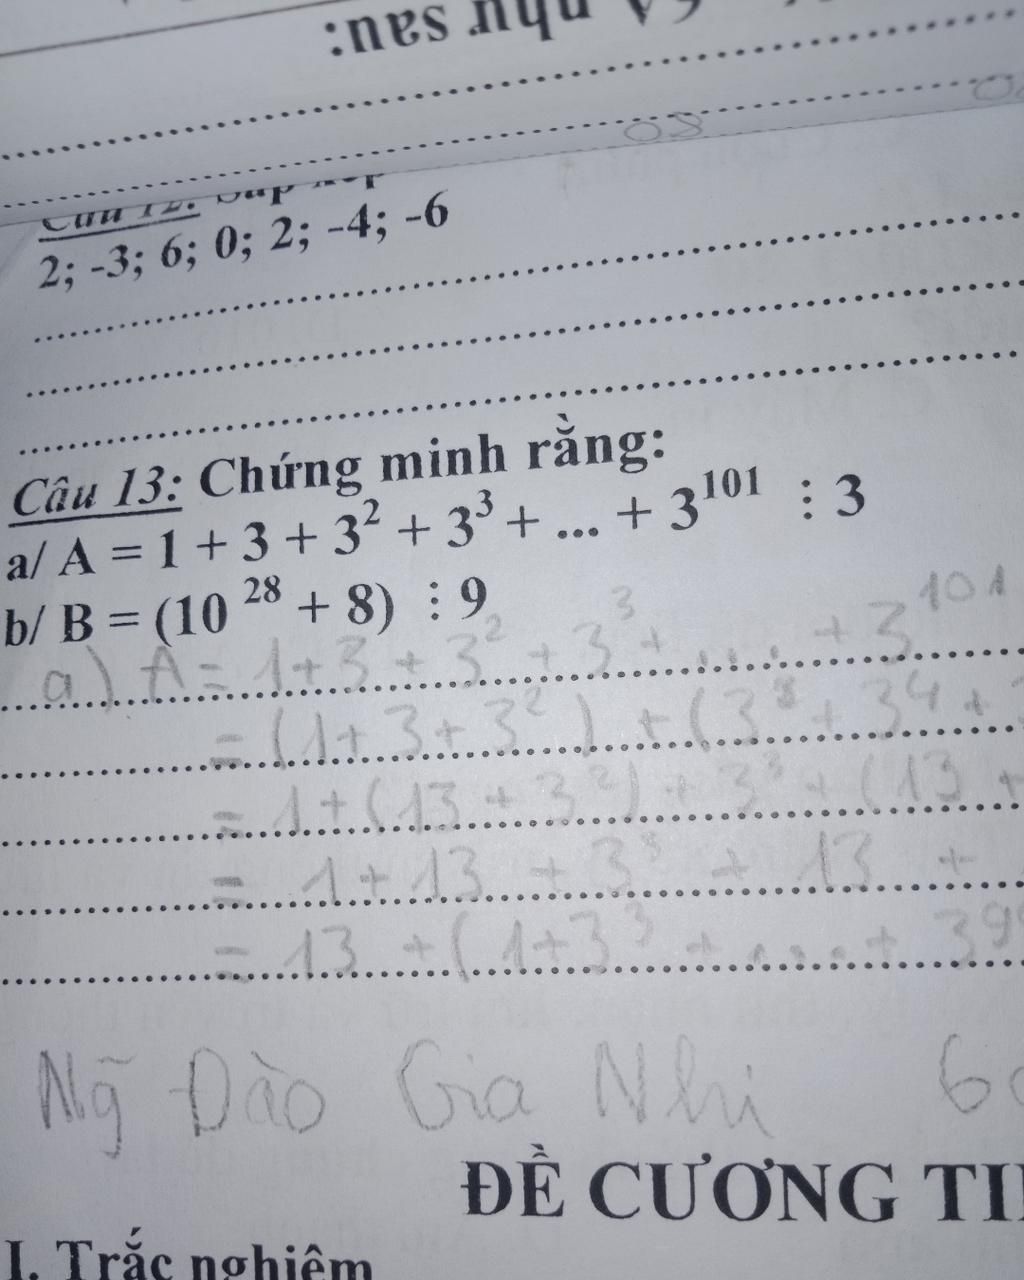 như sau:
08
Câu 12: Sắp xếp
2; -3; 6; 0; 2; -4; -6
Câu 13: Chứng minh rằng:
a/ A = 1 + 3 + 3² + 3³ + ... + 3¹⁰¹ ⋮ 3
b/ B = (10 ²⁸ + 8) ⋮ 9
a) A = 1 + 3 + 3² + 3³ + .... + 3¹⁰¹
= (1 + 3 + 3²) + (3³ + 3⁴ +
= 1 + (13 + 3²) + 3³ + (13 +
= 1 + 13 + 3³ + 13 +
= 13 + (1 + 3³ + .... + 3⁹⁹
Ng Đào Gia Nhi 6
ĐỀ CƯƠNG TI
I. Trắc nghiệm